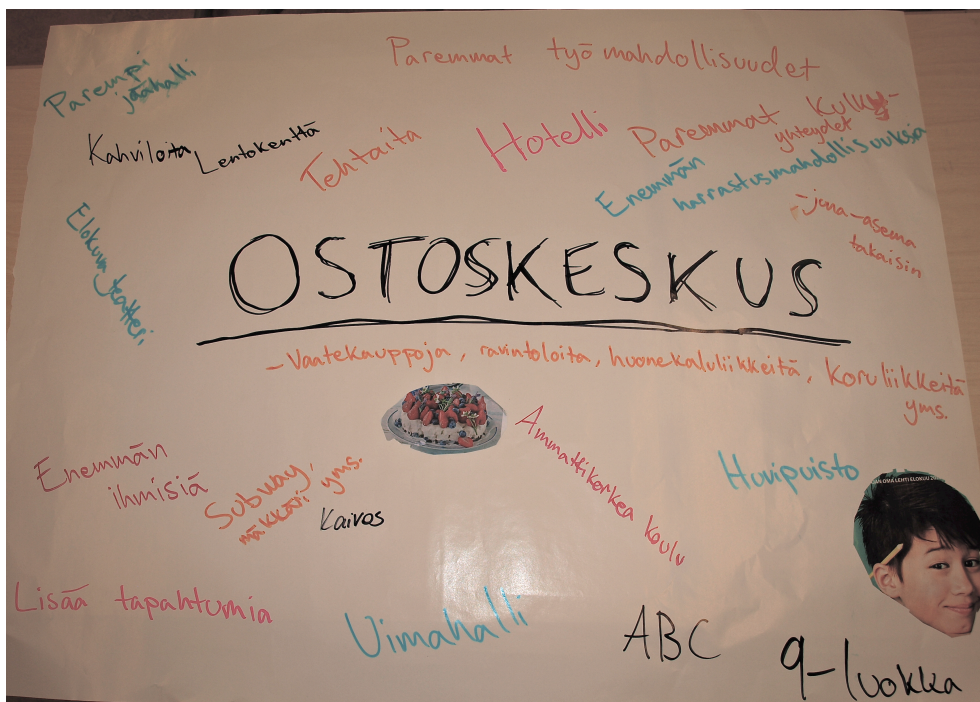 Paremmat työmahdollisuudet
Parempi
jäähalli
Kahviloita
Lentokenttä
Tehtaita
Hotelli
Paremmat Kulky-
yhteydet
Enemmän
harrastusmahdollisuuksia
-juna-asema
takaisin
Elokuvateatteri
OSTOSKESKUS
-Vaatekauppoja, ravintoloita, huonekaluliikkeitä, Koruliikkeitä
yms.
Enemmän
ihmisiä
Subway,
mäkkäri yms.
Kaivos
Ammattikorkea koulu
Huvipuisto
Lisää tapahtumia
Uimahalli
ABC
9-luokka